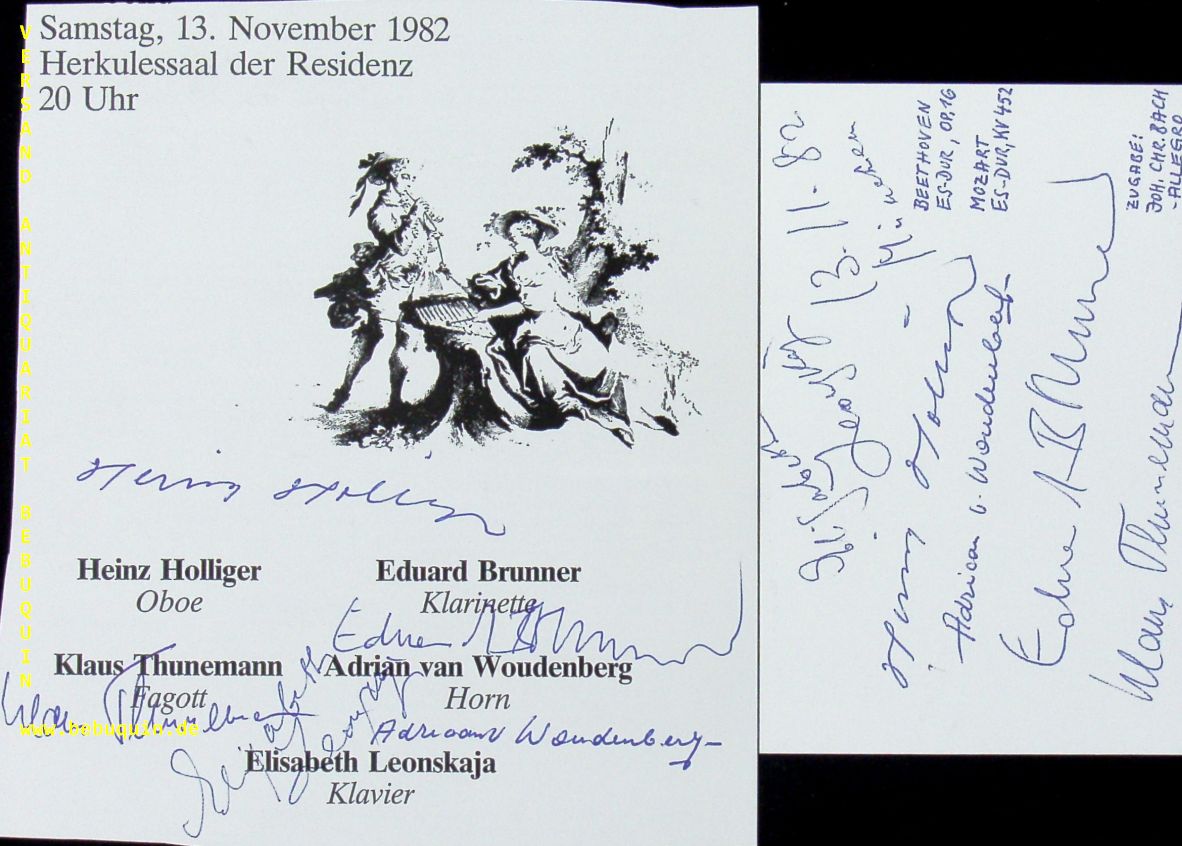 Samstag, 13. November 1982
Herkulessaal der Residenz
20 Uhr
Heinz Holliger
Heinz Holliger
Oboe
Eduard Brunner
Klarinette
Eduard Brunner
Klaus Thunemann
Fagott
Klaus Thunemann
Adrian van Woudenberg
Horn
Adriaan v. Woudenberg
Elisabeth Leonskaja
Elisabeth Leonskaja
Klavier
VERSAND ANTIQUARIAT BEBUQUIN
www.bebuquin.de
Elisabeth Leonskaja
13.11.82
München
Heinz Holliger
BEETHOVEN
ES-DUR, OP.16
Adriaan v. Woudenberg
MOZART
ES-DUR, KV 452
Eduard Brunner
Klaus Thunemann
ZUGABE:
JOH. CHR. BACH
-ALLEGRO